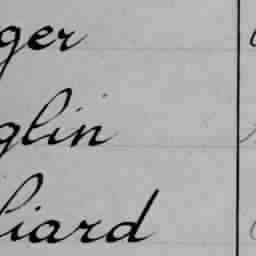 ger
glin
liard